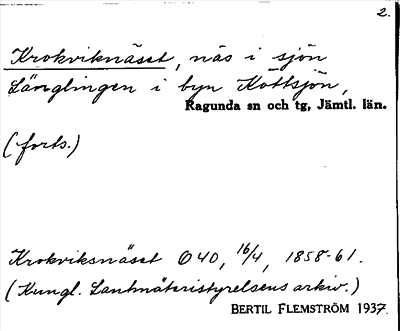 2.
Krokviknäset, näs i sjön
Länglingen i byn Köttsjön,
Ragunda sn och tg, Jämtl. län.
(forts.)
Krokviksnäset Ö40, 16/4, 1858-61.
(Kungl. Lantmäteristyrelsens arkiv.)
BERTIL FLEMSTRÖM 1937.